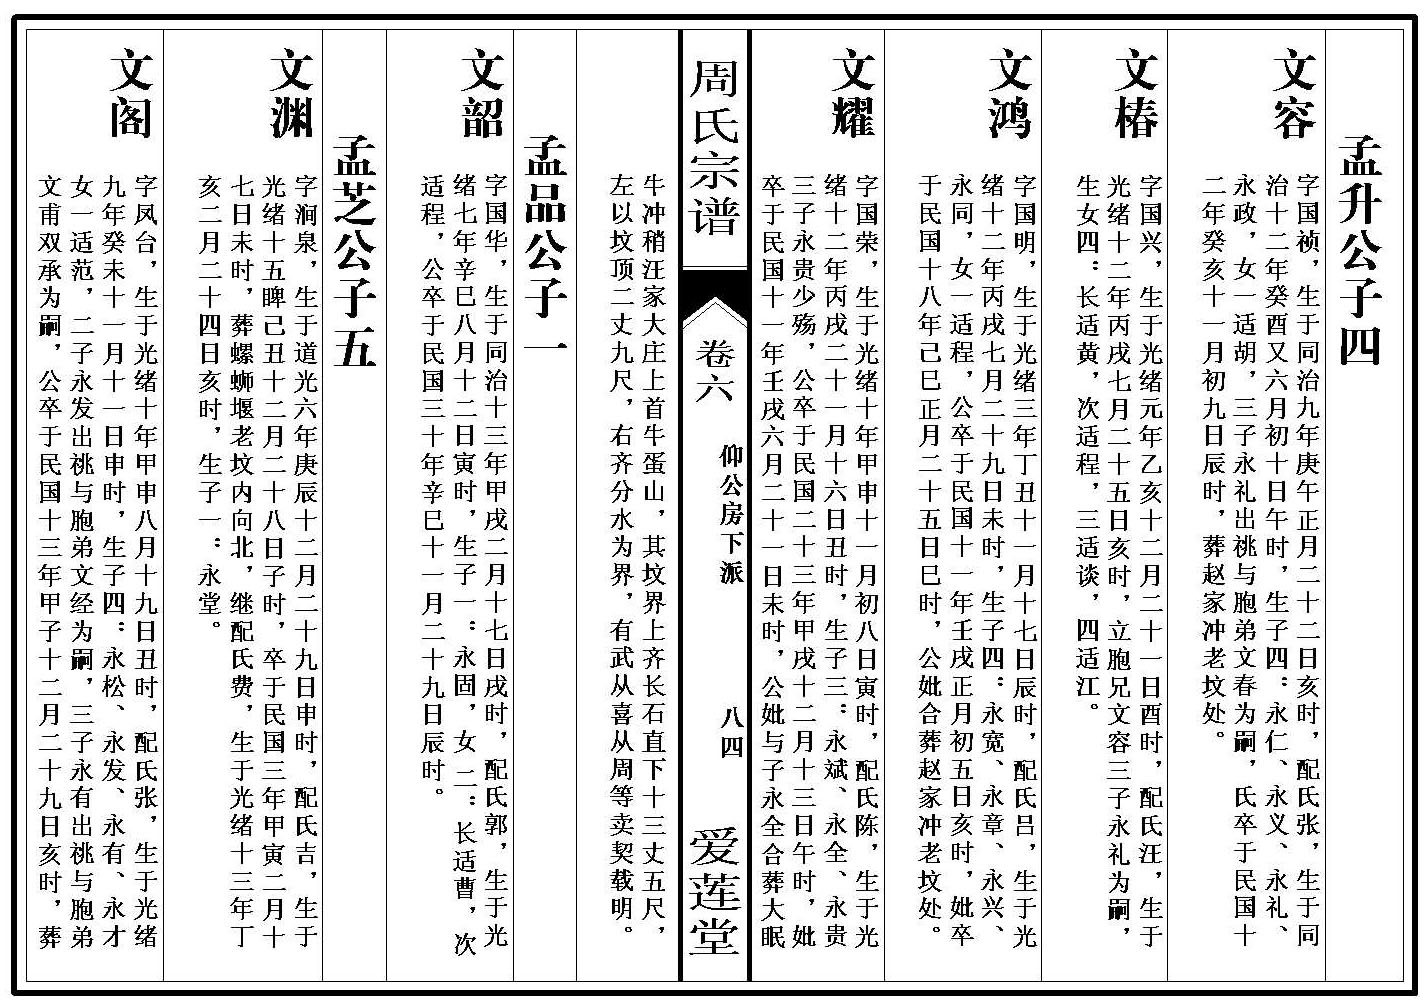 孟升公子四
文容
字国祯，生于同治九年庚午正月二十二日亥时，配氏张，生于同
治十二年癸酉又六月初十日午时，生子四：永仁、永义、永礼、
永政，女一适胡，三子永礼出祧与胞弟文春为嗣，氏卒于民国十
二年癸亥十一月初九日辰时，葬赵家冲老坟处。
文椿
字国兴，生于光绪元年乙亥十二月二十一日酉时，配氏汪，生于
光绪十二年丙戌七月二十五日亥时，立胞兄文容三子永礼为嗣，
生女四：长适黄，次适程，三适谈，四适江。
文鸿
字国明，生于光绪三年丁丑十一月十七日辰时，配氏吕，生于光
绪十二年丙戌七月二十九日未时，生子四：永宽、永章、永兴、
永同，女一适程，公卒于民国十一年壬戌正月初五日亥时，妣卒
于民国十八年己巳正月二十五日巳时，公妣合葬赵家冲老坟处。
文耀
字国荣，生于光绪十年甲申十一月初八日寅时，配氏陈，生于光
绪十二年丙戌二十一月十六日丑时，生子三：永斌、永全、永贵
三子永贵少殇，公卒于民国二十三年甲戌十二月十三日午时，妣
卒于民国十一年壬戌六月二十一日未时，公妣与子永全合葬大眠
周氏宗谱
卷六
仰公房下派
八四
爱莲堂
牛冲稍汪家大庄上首牛蛋山，其坟界上齐长石直下十三丈五尺，
左以坟顶二丈九尺，右齐分水为界，有武从喜从周等卖契载明。
孟品公子一
文韶
字国华，生于同治十三年甲戌二月十七日戌时，配氏郭，生于光
绪七年辛巳八月十二日寅时，生子一：永固，女二：长适曹，次
适程，公卒于民国三十年辛巳十一月二十九日辰时。
孟芝公子五
文渊
字涧泉，生于道光六年庚辰十二月二十九日申时，配氏吉，生于
光绪十五睥己丑十二月二十八日子时，卒于民国三年甲寅二月十
七日未时，葬螺蛳堰老坟内向北，继配氏费，生于光绪十三年丁
亥二月二十四日亥时，生子一：永堂。
文阁
字凤台，生于光绪十年甲申八月十九日丑时，配氏张，生于光绪
九年癸未十一月十一日申时，生子四：永松、永发、永有、永才
女一适范，二子永发出祧与胞弟文经为嗣，三子永有出祧与胞弟
文甫双承为嗣，公卒于民国十三年甲子十二月二十九日亥时，葬